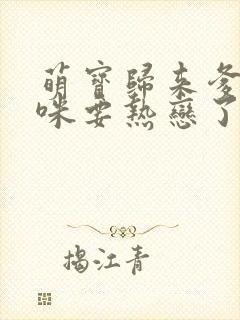 萌寶歸來爹
咪要熱戀了
揭江青